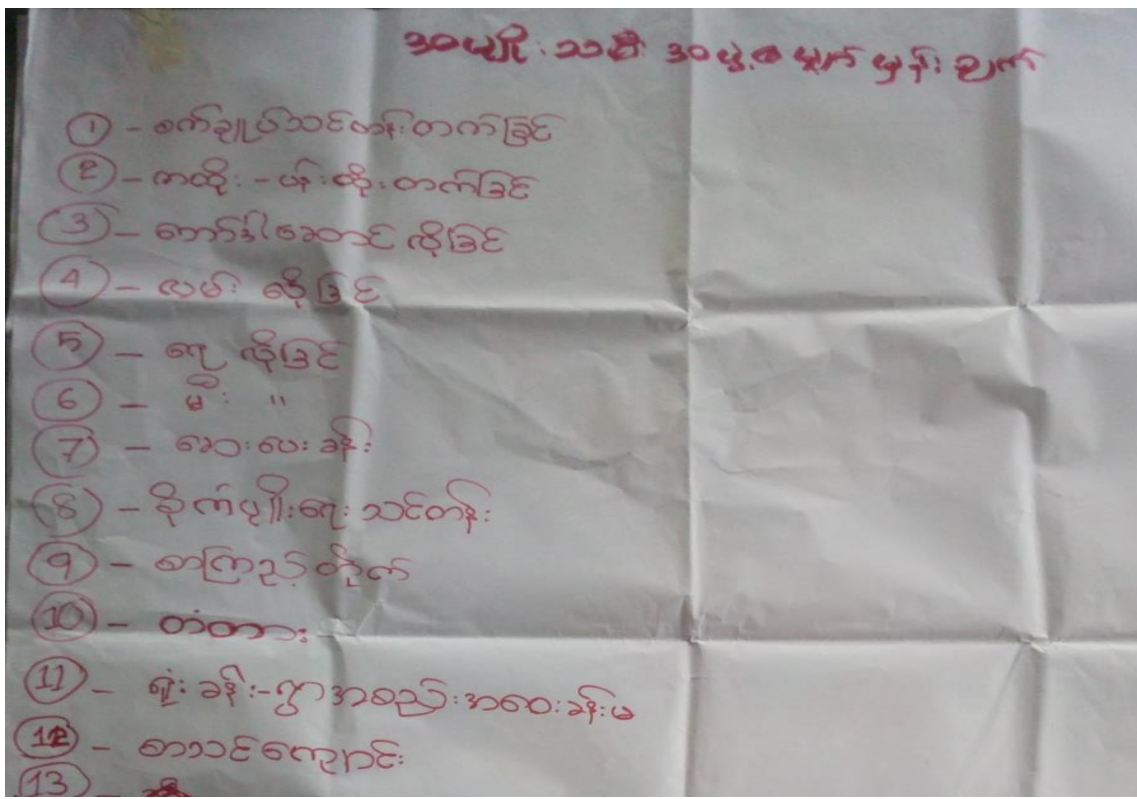 အမျိုးသမီး အဖွဲ့၏ မျှော်မှန်းချက်
① - စက်ချုပ်သင်တန်းတက်ခြင်
② - ဇာထိုး - ပန်းထိုးတက်ခြင်
③ - တော်ဒါဆောင် လိုခြင်
④ - လမ်း လိုခြင်
⑤ - ရေ လိုခြင်
⑥ - မီး "
⑦ - ဆေးပေးခန်း
⑧ - စိုက်ပျိုးရေးသင်တန်း
⑨ - စာကြည့်တိုက်
⑩ - တံတား
⑪ - ရုံးခန်း - ရွာအစည်းအဝေးခန်းမ
⑫ - စာသင်ကျောင်း
⑬ -